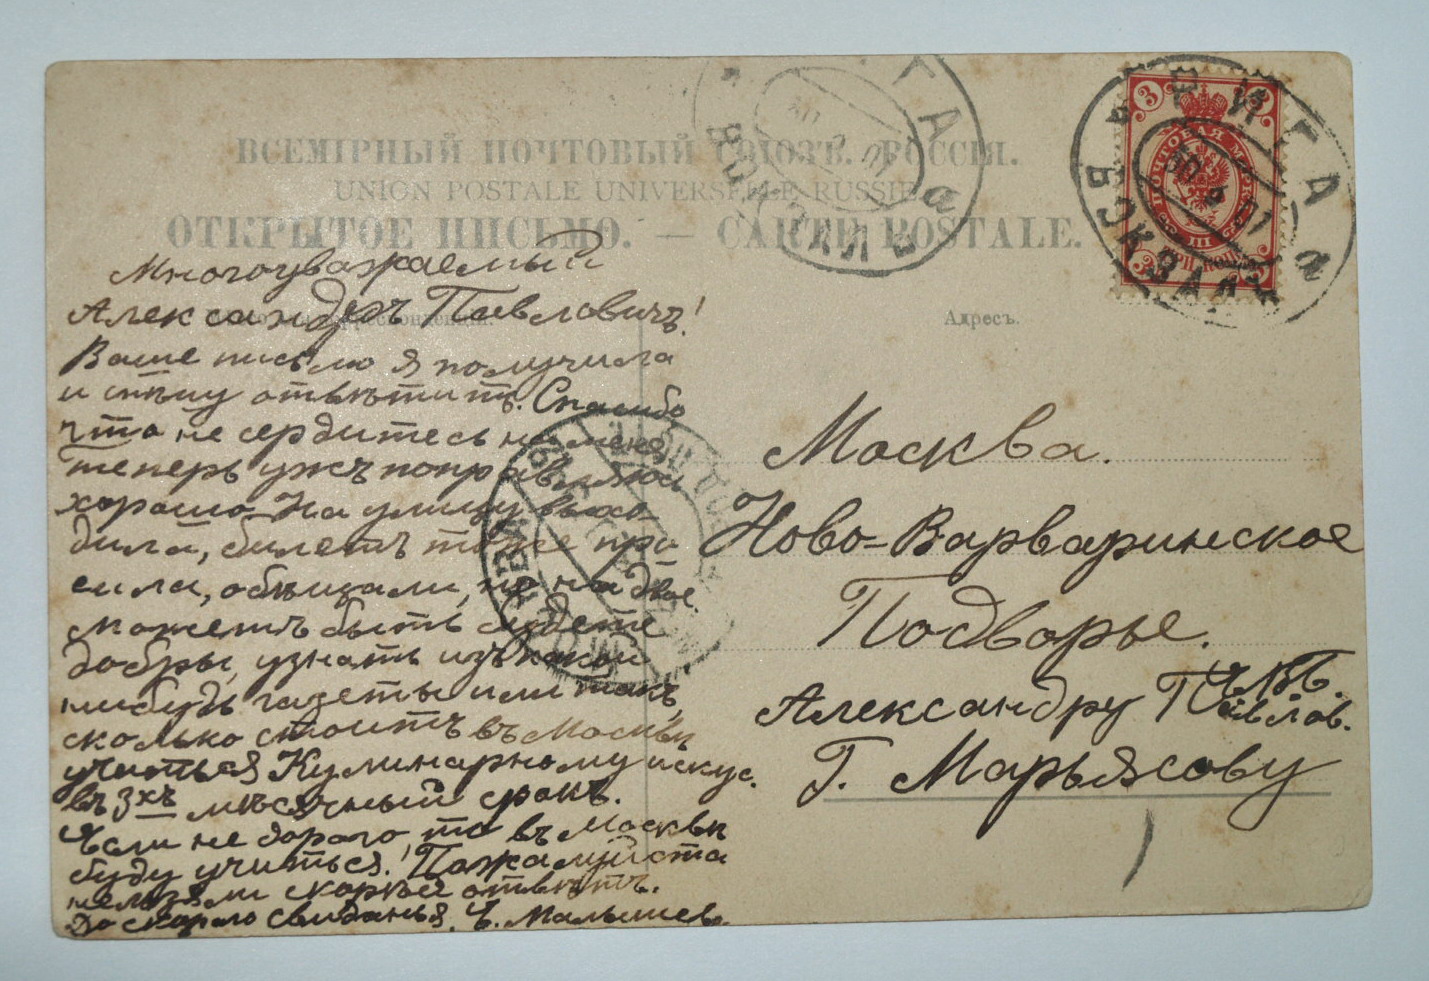 ВСЕМІРНЫЙ ПОЧТОВЫЙ СОЮЗЪ. РОССІЯ.
UNION POSTALE UNIVERSELLE RUSSIE
ОТКРЫТОЕ ПИСЬМО. — CARTE POSTALE.
Многоуважаемый
Александръ Павловичъ!
Ваше письмо я получила
и спѣшу отвѣтить. Спасибо
что не сердитесь на меня
теперь ужъ поправляюсь
хорошо. На улицу выхо
дила, билетъ тоже про
сила, обѣщали, но на двое
можетъ быть будете
добры, узнать изъ какой
нибудь газеты или такъ,
сколько стоитъ въ Москвѣ
учиться Кулинарному искус.
въ 3хъ мѣсячный срокъ.
Если не дорого, то въ Москвѣ
буду учиться! Пожалуйста
нельзя ли скорѣе отвѣтъ.
До скораго свиданья.
Адресъ.
Москва.
Ново-Варваринское
Подворье.
Александру Павлов.
Г. Марьясову
РИГА
ВОКЗАЛЪ
а
30 9 01
РИГА
ВОКЗАЛЪ
а
30 9 01
ПОЧТОВАЯ МАРКА
3
III
МОСКВА